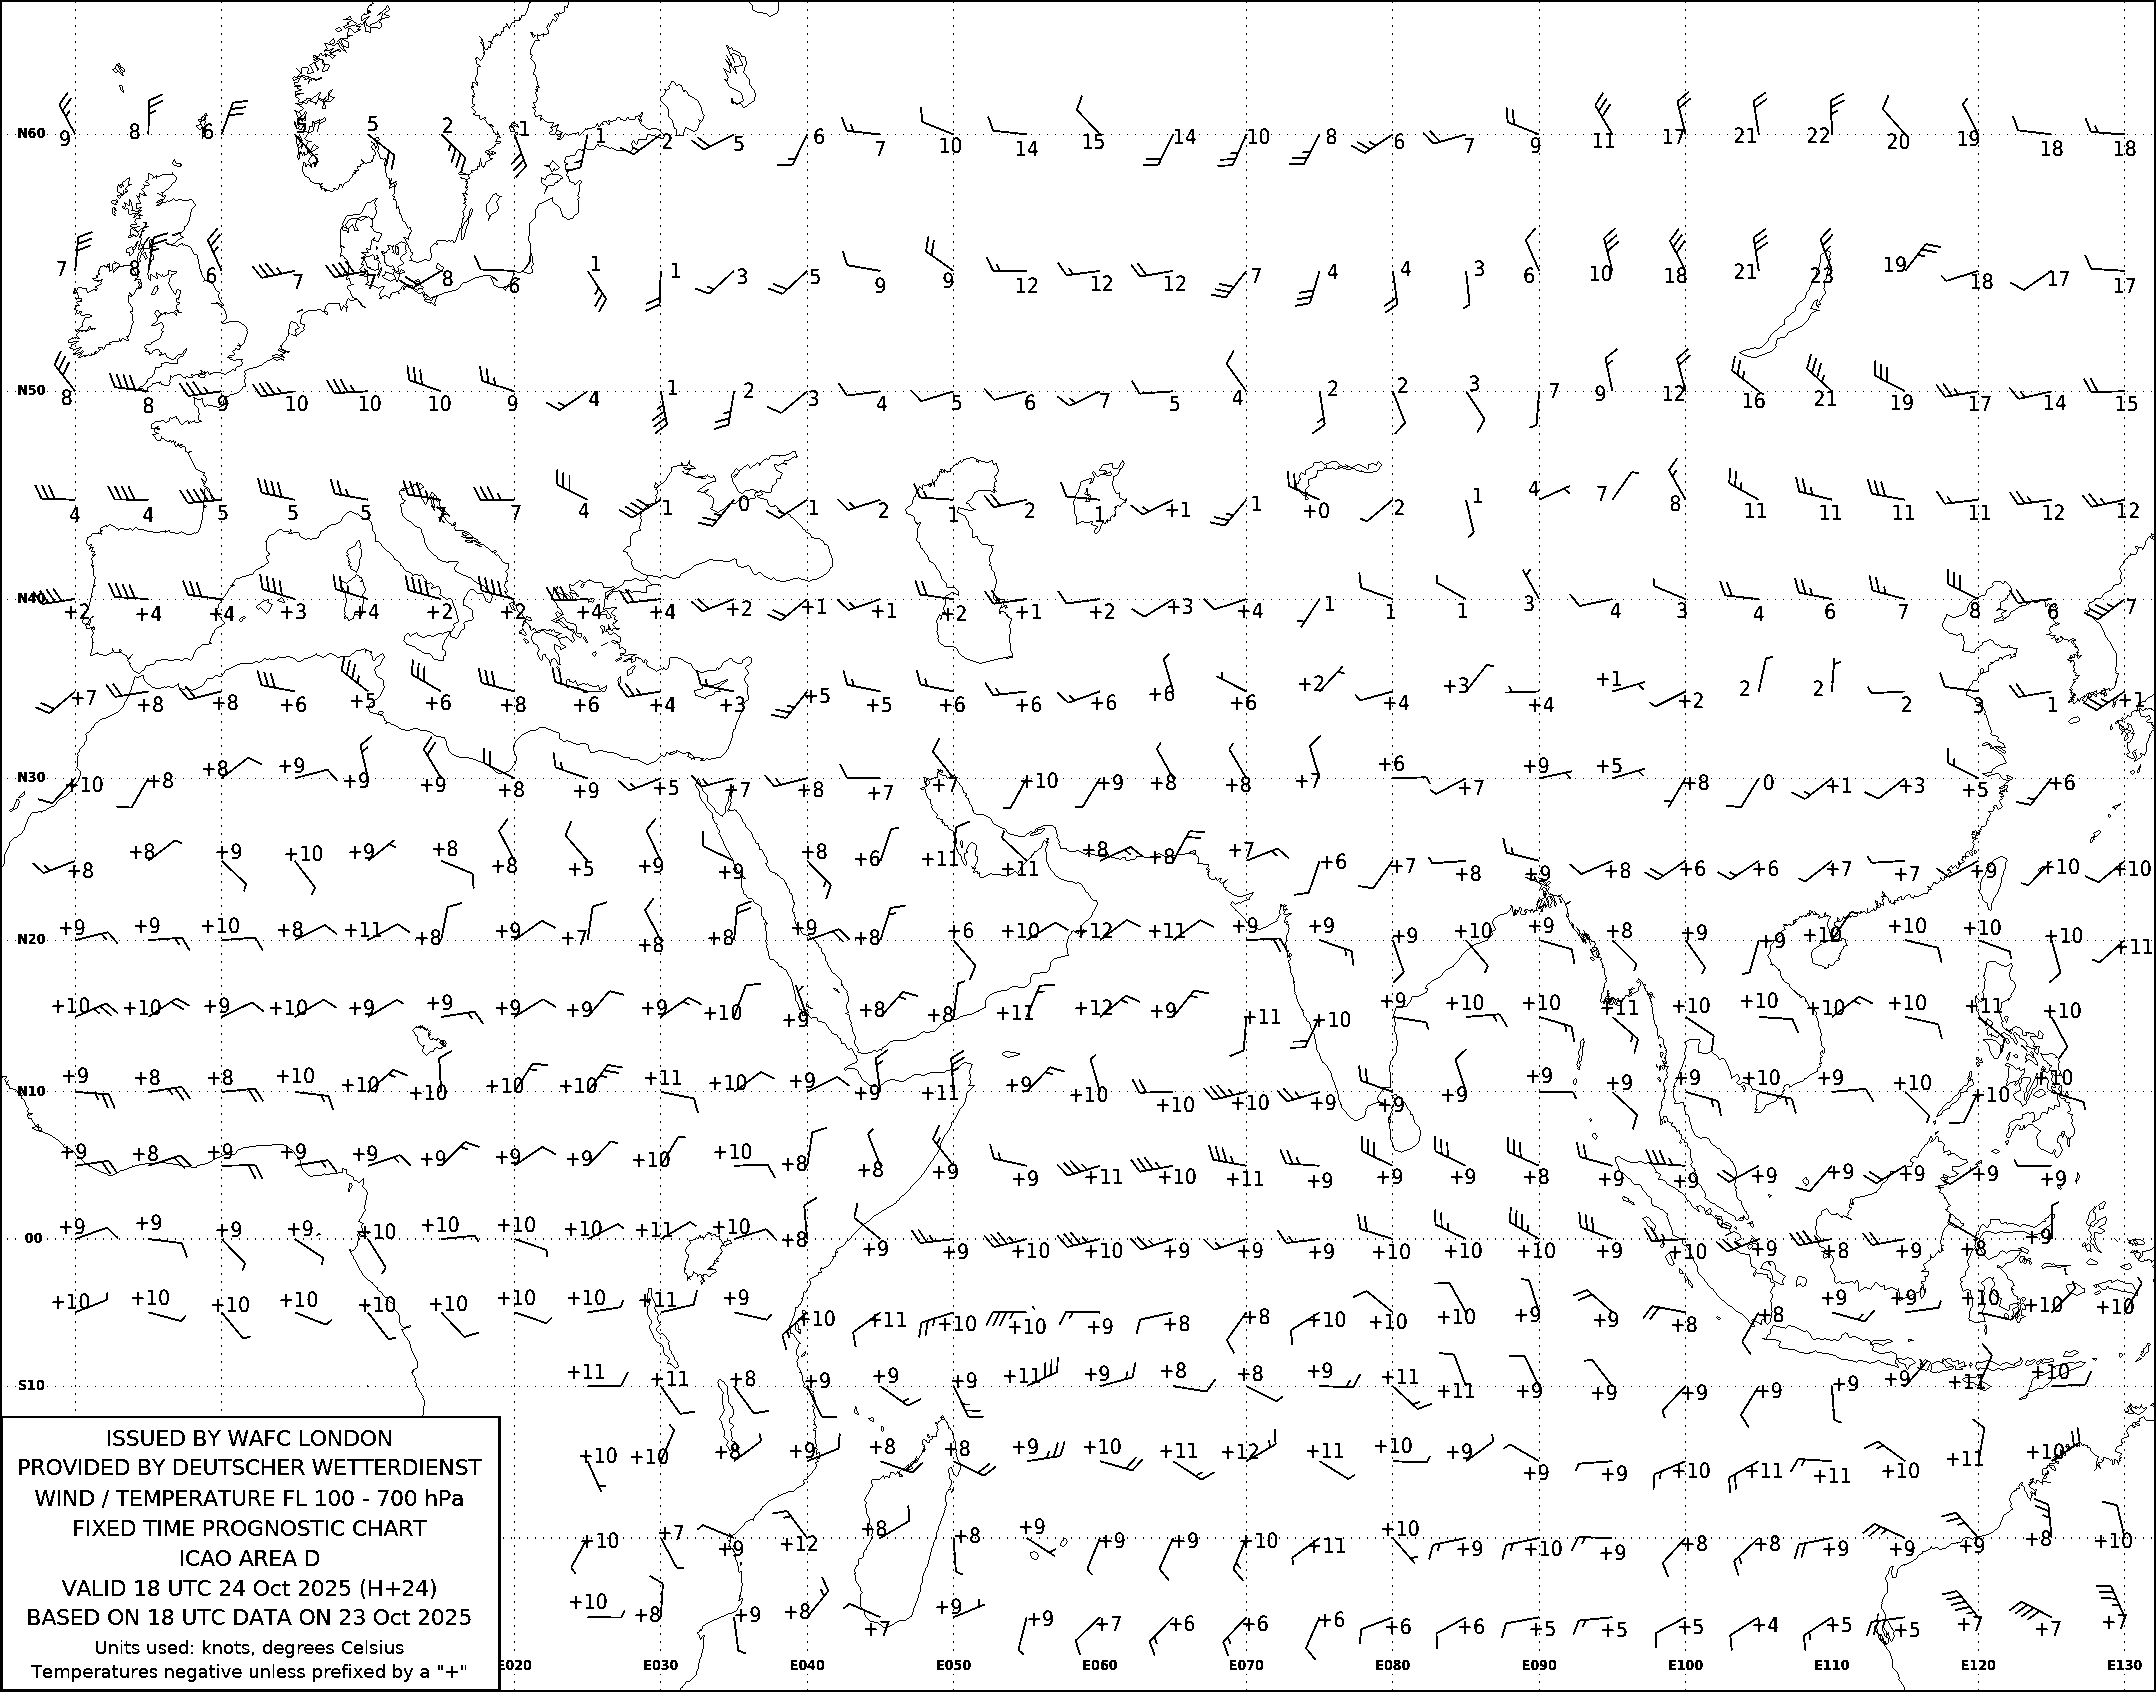 N60 9 8 6 5 5 2 1 1 2 5 6 7 10 14 15 14 10 8 6 7 9 11 17 21 22 20 19 18 18
7 8 6 7 7 8 6 1 1 3 5 9 9 12 12 12 7 4 4 3 6 10 18 21 23 19 18 17 17
N50 8 8 9 10 10 10 9 4 1 2 3 4 5 6 7 5 4 2 2 3 7 9 12 16 21 19 17 14 15
4 4 5 5 5 7 7 4 1 0 1 2 1 2 1 +1 1 +0 2 1 4 7 8 11 11 11 11 12 12
N40 +2 +4 +4 +3 +4 +2 +2 +4 +4 +2 +1 +1 +2 +1 +2 +3 +4 1 1 1 3 4 3 4 6 7 8 6 7
+7 +8 +8 +6 +5 +6 +8 +6 +4 +3 +5 +5 +6 +6 +6 +6 +6 +2 +4 +3 +4 +1 +2 2 2 2 3 1 +1
N30 +10 +8 +8 +9 +9 +9 +8 +9 +5 +7 +8 +7 +7 +10 +9 +8 +8 +7 +6 +7 +9 +5 +8 0 +1 +3 +5 +6
+8 +8 +9 +10 +9 +8 +8 +5 +9 +9 +8 +6 +11 +11 +8 +8 +7 +6 +7 +8 +9 +8 +6 +6 +7 +7 +9 +10 +10
N20 +9 +9 +10 +8 +11 +8 +9 +7 +8 +8 +9 +8 +6 +10 +12 +11 +9 +9 +9 +10 +9 +8 +9 +9 +10 +10 +10 +10 +11
+10 +10 +9 +10 +9 +9 +9 +9 +9 +10 +9 +8 +8 +11 +12 +9 +11 +10 +9 +10 +10 +11 +10 +10 +10 +10 +11 +10
N10 +9 +8 +8 +10 +10 +10 +10 +10 +11 +10 +9 +9 +11 +9 +10 +10 +10 +9 +9 +9 +9 +9 +9 +10 +9 +10 +10 +10
+9 +8 +9 +9 +9 +9 +9 +9 +10 +10 +8 +8 +9 +9 +11 +10 +11 +9 +9 +9 +8 +9 +9 +9 +9 +9 +9 +9
00 +9 +9 +9 +9 +10 +10 +10 +10 +11 +10 +8 +9 +9 +10 +10 +9 +9 +9 +10 +10 +10 +9 +10 +9 +8 +9 +8 +9
+10 +10 +10 +10 +10 +10 +10 +10 +11 +9 +10 +11 +10 +10 +9 +8 +8 +10 +10 +10 +9 +9 +8 +8 +9 +9 +10 +10 +10
S10 +11 +11 +8 +9 +9 +9 +11 +9 +8 +8 +9 +11 +11 +9 +9 +9 +9 +9 +9 +11 +10
+10 +10 +8 +9 +8 +8 +9 +10 +11 +12 +11 +10 +9 +9 +9 +10 +11 +11 +10 +11 +10
+10 +7 +9 +12 +8 +8 +9 +9 +9 +10 +11 +10 +9 +10 +9 +8 +8 +9 +9 +9 +8 +10
+10 +8 +9 +8 +7 +9 +9 +7 +6 +6 +6 +6 +6 +5 +5 +5 +4 +5 +5 +7 +7 +7
ISSUED BY WAFC LONDON
PROVIDED BY DEUTSCHER WETTERDIENST
WIND / TEMPERATURE FL 100 - 700 hPa
FIXED TIME PROGNOSTIC CHART
ICAO AREA D
VALID 18 UTC 24 Oct 2025 (H+24)
BASED ON 18 UTC DATA ON 23 Oct 2025
Units used: knots, degrees Celsius
Temperatures negative unless prefixed by a "+"
E020 E030 E040 E050 E060 E070 E080 E090 E100 E110 E120 E130